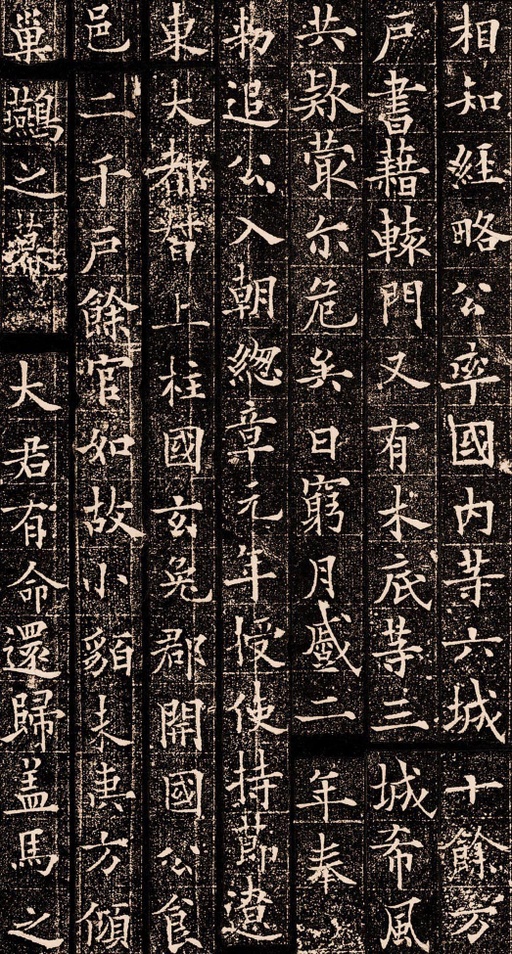 相知經略公率國内等六城十餘万
戶書藉轅門又有木底等三城希風
共款蕞尒危矣日窮月蹙二年奉
勑追公入朝惣章元年授使持節遼
東大都督上柱國玄菟郡開國公食
邑二千戶餘官如故小貊未夷方傾
巢鷰之幕大君有命還歸盖馬之